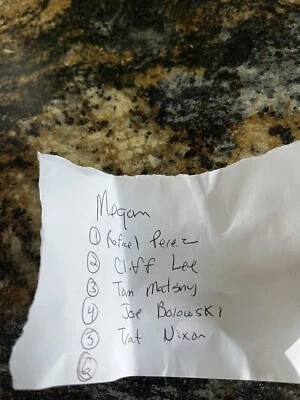 Megan
① Rafael Perez
② Cliff Lee
③ Tom Matsny
④ Joe Bolowski
⑤ Trat Nixon
⑥